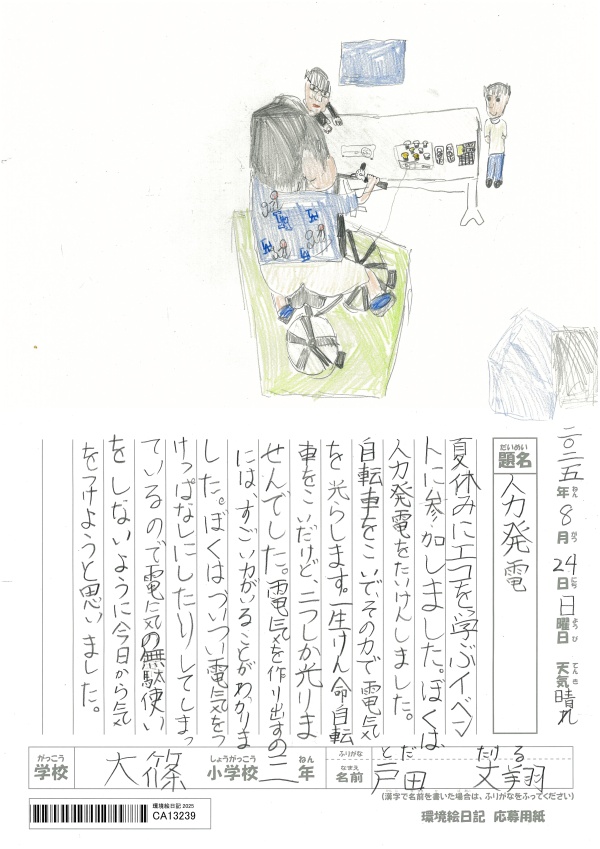 二〇二五年8月24日日曜日 天気晴れ
ねん がつ にち ようび てんき
だいめい
題名 人力発電
夏休みにエコを学ぶイベン
トに参加しました。ぼくは
人力発電をたいけんしました。
自転車をこいで、その力で電気
を光らします。一生けん命自転
車をこいだけど、二つしか光りま
せんでした。電気を作り出すの
には、すごい力がいることがわかりま
した。ぼくは、ついつい電気をつ
けっぱなしにしたりしてしまっ
ているので電気の無駄使い
をしないように今日から気
をつけようと思いました。
がっこう しょうがっこう ねん ふりがな とだ たける
学校 大篠 小学校 三年 なまえ 名前 戸田 丈翔
(漢字で名前を書いた場合は、ふりがなをふってください)
環境絵日記2025
CA13239
環境絵日記 応募用紙